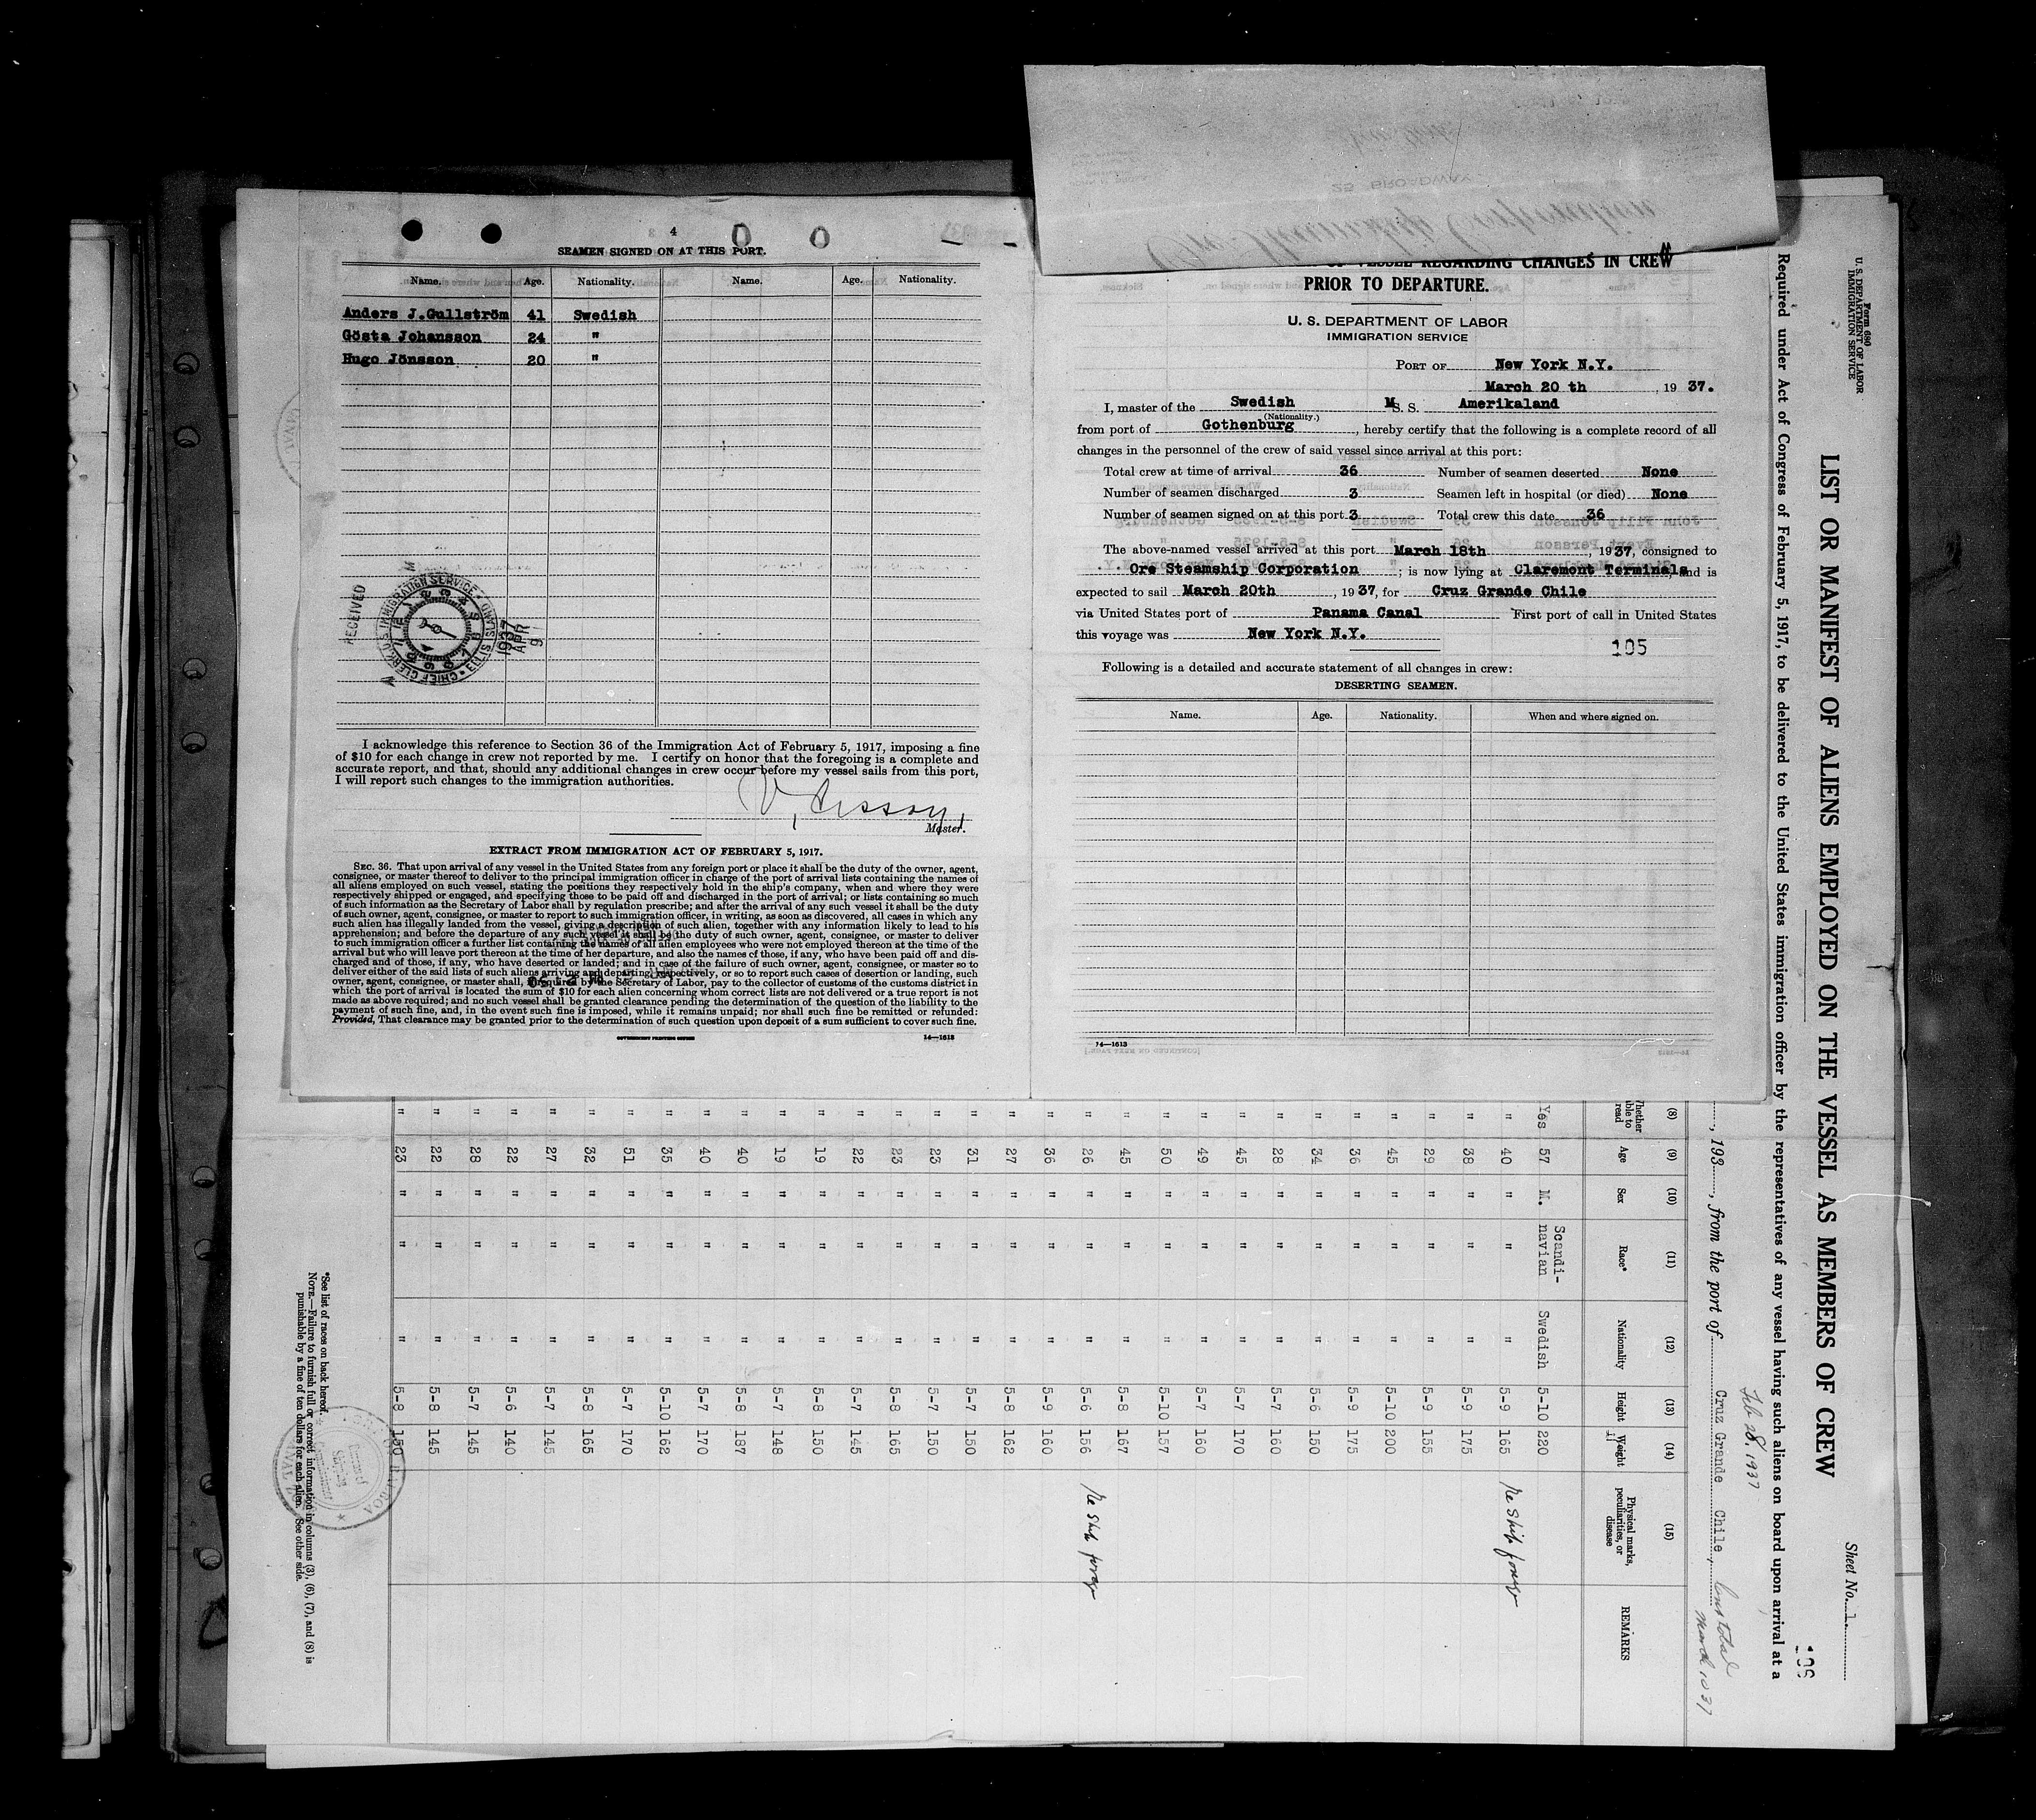 4
SEAMEN SIGNED ON AT THIS PORT.
Name. Age. Nationality. Name. Age. Nationality.
Anders J.Gullström 41 Swedish
Gösta Johansson 24 "
Hugo Jönsson 20 "
RECEIVED
CHIEF CLERK U.S. IMMIGRATION SERVICE ELLIS ISLAND
1937
APR
9
I acknowledge this reference to Section 36 of the Immigration Act of February 5, 1917, imposing a fine
of $10 for each change in crew not reported by me. I certify on honor that the foregoing is a complete and
accurate report, and that, should any additional changes in crew occur before my vessel sails from this port,
I will report such changes to the immigration authorities.
Master.
EXTRACT FROM IMMIGRATION ACT OF FEBRUARY 5, 1917.
SEC. 36. That upon arrival of any vessel in the United States from any foreign port or place it shall be the duty of the owner, agent,
consignee, or master thereof to deliver to the principal immigration officer in charge of the port of arrival lists containing the names of
all aliens employed on such vessel, stating the positions they respectively hold in the ship's company, when and where they were
respectively shipped or engaged, and specifying those to be paid off and discharged in the port of arrival; or lists containing so much
of such information as the Secretary of Labor shall by regulation prescribe; and after the arrival of any such vessel it shall be the duty
of such owner, agent, consignee, or master to report to such immigration officer, in writing, as soon as discovered, all cases in which any
such alien has illegally landed from the vessel, giving a description of such alien, together with any information likely to lead to his
apprehension; and before the departure of any such vessel it shall be the duty of such owner, agent, consignee, or master to deliver
to such immigration officer a further list containing the names of all alien employees who were not employed thereon at the time of the
arrival but who will leave port thereon at the time of her departure, and also the names of those, if any, who have been paid off and dis-
charged and of those, if any, who have deserted or landed; and in case of the failure of such owner, agent, consignee, or master so to
deliver either of the said lists of such aliens arriving and departing, respectively, or so to report such cases of desertion or landing, such
owner, agent, consignee, or master shall, if required by the Secretary of Labor, pay to the collector of customs of the customs district in
which the port of arrival is located the sum of $10 for each alien concerning whom correct lists are not delivered or a true report is not
made as above required; and no such vessel shall be granted clearance pending the determination of the question of the liability to the
payment of such fine, and, in the event such fine is imposed, while it remains unpaid; nor shall such fine be remitted or refunded:
Provided, That clearance may be granted prior to the determination of such question upon deposit of a sum sufficient to cover such fine.
GOVERNMENT PRINTING OFFICE 14—1613
25 BROADWAY
Ore Steamship Corporation
OF VESSEL REGARDING CHANGES IN CREW
PRIOR TO DEPARTURE.
U. S. DEPARTMENT OF LABOR
IMMIGRATION SERVICE
PORT OF New York N.Y.
March 20 th , 19 37.
I, master of the Swedish M S. S. Amerikaland
(Nationality.)
from port of Gothenburg , hereby certify that the following is a complete record of all
changes in the personnel of the crew of said vessel since arrival at this port:
Total crew at time of arrival 36 Number of seamen deserted None
Number of seamen discharged 3 Seamen left in hospital (or died) None
Number of seamen signed on at this port 3 Total crew this date 36
The above-named vessel arrived at this port March 18th , 1937, consigned to
Ore Steamship Corporation ; is now lying at Claremont Terminals, and is
expected to sail March 20th , 1937, for Cruz Grande Chile
via United States port of Panama Canal First port of call in United States
this voyage was New York N.Y.
105
Following is a detailed and accurate statement of all changes in crew:
DESERTING SEAMEN.
Name. Age. Nationality. When and where signed on.
14—1613
Form 680
U. S. DEPARTMENT OF LABOR
IMMIGRATION SERVICE
Sheet No. 1
106
LIST OR MANIFEST OF ALIENS EMPLOYED ON THE VESSEL AS MEMBERS OF CREW
Required under Act of Congress of February 5, 1917, to be delivered to the United States immigration officer by the representatives of any vessel having such aliens on board upon arrival at a
Feb 28, 1937
, 193 , from the port of Cruz Grande Chile, Cristobal
March 10 37
(8) (9) (10) (11) (12) (13) (14) (15)
Whether able to read Age Sex Race* Nationality Height Weight Physical marks, peculiarities, or disease REMARKS
Yes 57 M. Scandi-navian Swedish 5-10 220
" 40 " " " 5-9 165
" 38 " " " 5-9 175
" 29 " " " 5-9 155
" 45 " " " 5-10 200
" 36 " " " 5-9 175
" 34 " " " 5-6 150
" 28 " " " 5-7 160
" 45 " " " 5-7 170
" 49 " " " 5-7 160
" 50 " " " 5-10 157
" 45 " " " 5-8 167
" 26 " " " 5-6 156
" 36 " " " 5-9 160
" 27 " " " 5-8 162
" 31 " " " 5-7 150
" 23 " " " 5-7 150
" 23 " " " 5-8 165
" 22 " " " 5-7 145
" 19 " " " 5-8 150
" 19 " " " 5-7 148
" 40 " " " 5-8 187
" 40 " " " 5-7 170
" 35 " " " 5-10 162
" 51 " " " 5-7 170
" 32 " " " 5-8 165
" 27 " " " 5-7 145
" 22 " " " 5-6 140
" 28 " " " 5-7 145
" 22 " " " 5-8 145
" 23 " " " 5-8 150
*See list of races on back hereof.
NOTE.—Failure to furnish full or correct information in columns (3), (6), (7), and (8) is
punishable by a fine of ten dollars for each alien. See other side.